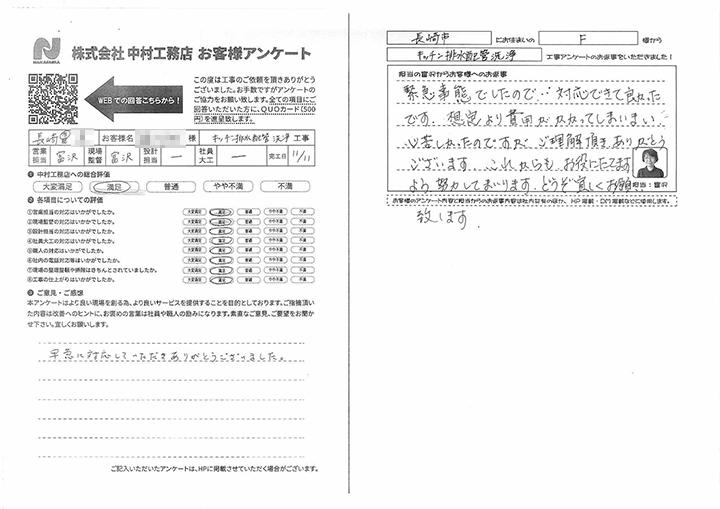 NAKAMURA
株式会社 中村工務店 お客様アンケート
WEBでの回答こちらから！
この度は工事のご依頼を頂きありがとう
ございました。お手数ですがアンケートの
ご協力をお願い致します。全ての項目にご
回答いただいた方に、QUOカード（500
円）を進呈致します。
長崎 市 お客様名 様 キッチン排水配管洗浄 工事
営業担当 富沢 現場監督 富沢 設計担当 ー 社員大工 ー 完工日 11/11
❶ 中村工務店への総合評価
大変満足 満足 普通 やや不満 不満
❷ 各項目についての評価
①営業担当の対応はいかがでしたか。 大変満足 満足 普通 やや不満 不満
②現場監督の対応はいかがでしたか。 大変満足 満足 普通 やや不満 不満
③設計担当の対応はいかがでしたか。 大変満足 満足 普通 やや不満 不満
④社員大工の対応はいかがでしたか。 大変満足 満足 普通 やや不満 不満
⑤職人の対応はいかがでしたか。 大変満足 満足 普通 やや不満 不満
⑥社内の電話対応等はいかがでしたか。 大変満足 満足 普通 やや不満 不満
⑦現場の整理整頓や掃除はきちんとされていましたか。 大変満足 満足 普通 やや不満 不満
⑧工事の仕上がりはいかがでしたか。 大変満足 満足 普通 やや不満 不満
❸ ご意見・ご感想
本アンケートはより良い現場を創る為、より良いサービスを提供することを目的としております。ご指摘頂い
た内容は改善へのヒントに、お褒めの言葉は社員や職人の励みになります。素直なご意見、ご要望をお聞か
せ下さい。宜しくお願いします。
早急に対応していただきありがとうございました。
ご記入いただいたアンケートは、HPに掲載させていただく場合がございます。
長崎市 にお住まいの F 様から
キッチン排水配管洗浄 工事アンケートのお返事をいただきました！
担当の富沢からお客様へのお返事
緊急事態でしたので‥対応できて良かった
です。想定より費用がかかってしまいまい
心苦しかったのですが、ご理解頂きありがとう
ございます。これからも、お役にたてます
よう努力してまいります。どうぞ宜しくお願い
担当：富沢
お客様のアンケート内容と担当からのお返事内容は社内共有のほか、HP掲載・DM掲載などに使用します。
致します。